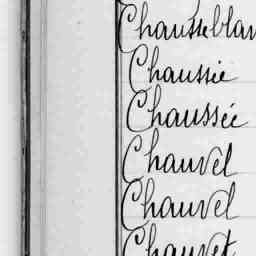 Chausseblan
Chaussie
Chaussée
Chauvel
Chauvel
Chauvet